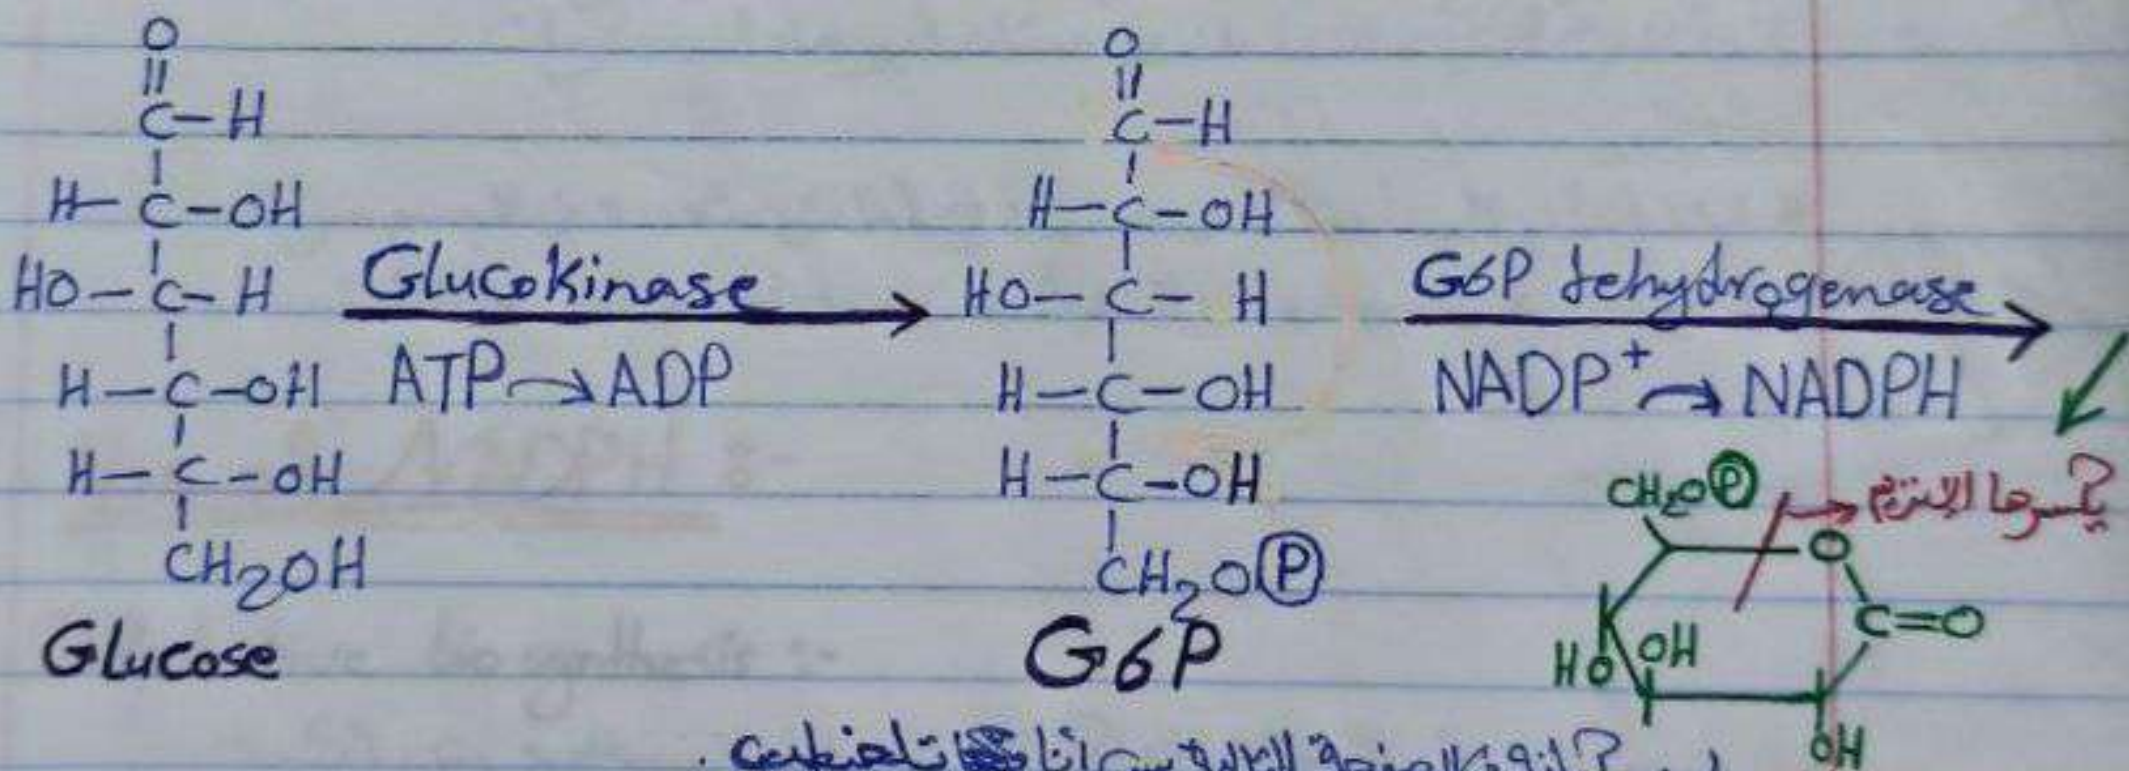 O
C-H
H-C-OH
HO-C-H
H-C-OH
H-C-OH
CH2OH
Glucose
Glucokinase
ATP→ADP
O
C-H
H-C-OH
HO-C-H
H-C-OH
H-C-OH
CH2O(P)
G6P
G6P dehydrogenase
NADP+→NADPH
CH2O(P)
يكسرها الإنزيم
O
C=O
HO
OH
OH